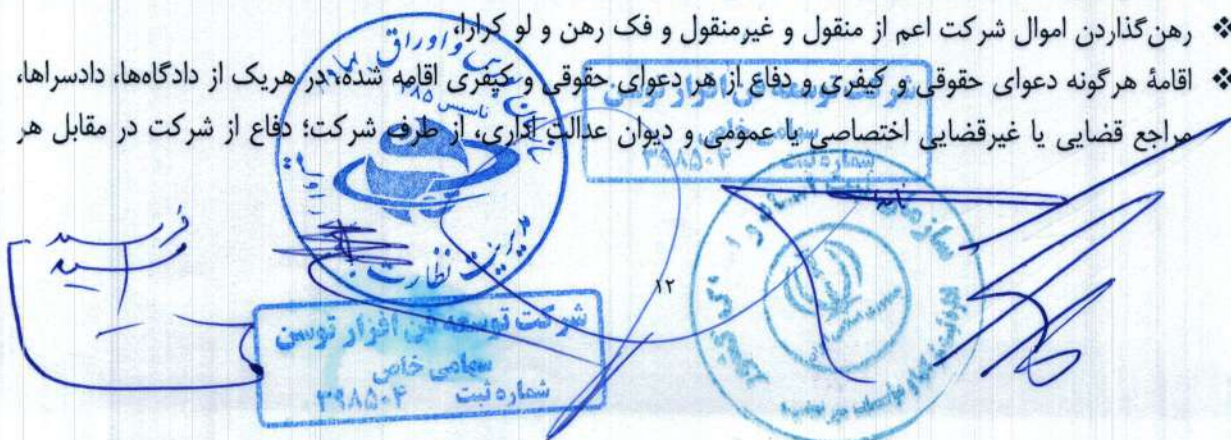 ❖ رهن‌گذاردن اموال شرکت اعم از منقول و غیرمنقول و فک رهن و لو کرارا،
❖ اقامهٔ هرگونه دعوای حقوقی و کیفری و دفاع از هر دعوای حقوقی و کیفری اقامه شده، در هریک از دادگاه‌ها، دادسراها،
مراجع قضایی یا غیرقضایی اختصاصی یا عمومی و دیوان عدالت اداری، از طرف شرکت؛ دفاع از شرکت در مقابل هر
شرکت توسعه فن افزار توسن
سهامی خاص
شماره ثبت ۳۹۸۵۰۴
و اوراق
تاسیس
مدیریت نظارت
۱۲
شرکت توسعه فن افزار توسن
سهامی خاص
شماره ثبت ۳۹۸۵۰۴
سازمان